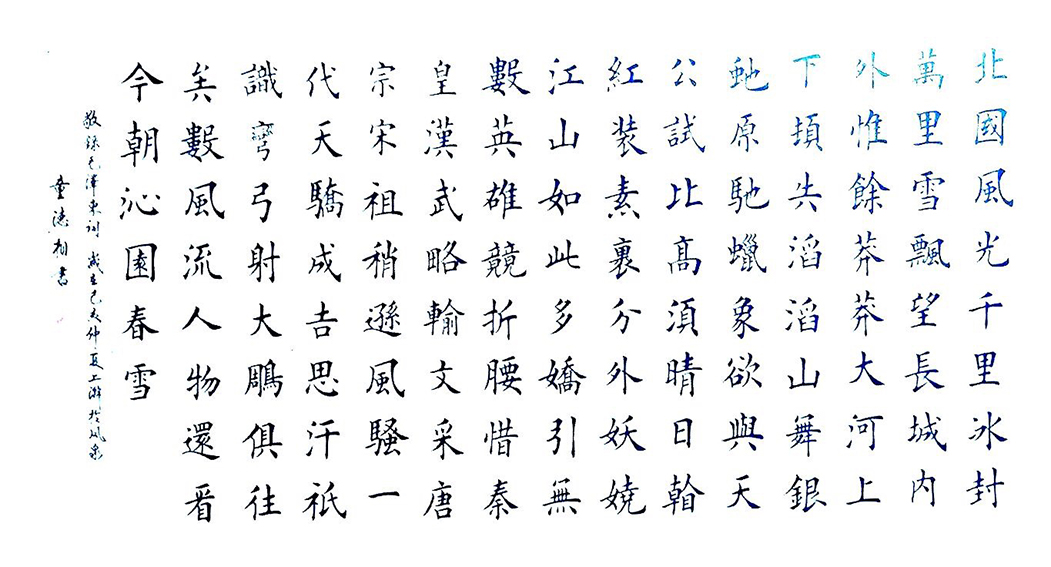 北國風光千里冰封
萬里雪飄望長城内
外惟餘莽莽大河上
下頓失滔滔山舞銀
虵原馳蠟象欲與天
公試比高須晴日看
紅装素裹分外妖嬈
江山如此多嬌引無
數英雄競折腰惜秦
皇漢武略輸文采唐
宗宋祖稍遜風騷一
代天驕成吉思汗祇
識彎弓射大鵰俱往
矣數風流人物還看
今朝沁園春雪
敬録毛澤東詞 歲在己亥仲夏上澣於風泉
童德相書